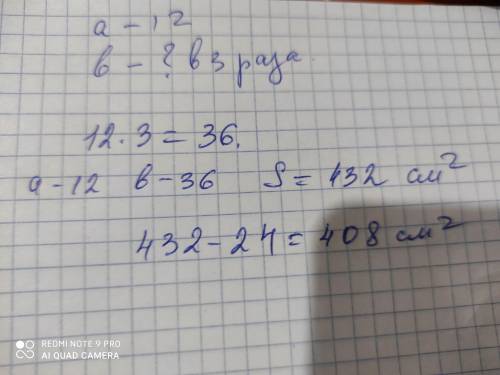 а - 12
в - ? в 3 раза.
12 · 3 = 36.
а - 12 в - 36 S = 432 см²
432 - 24 = 408 см²
REDMI NOTE 9 PRO
AI QUAD CAMERA